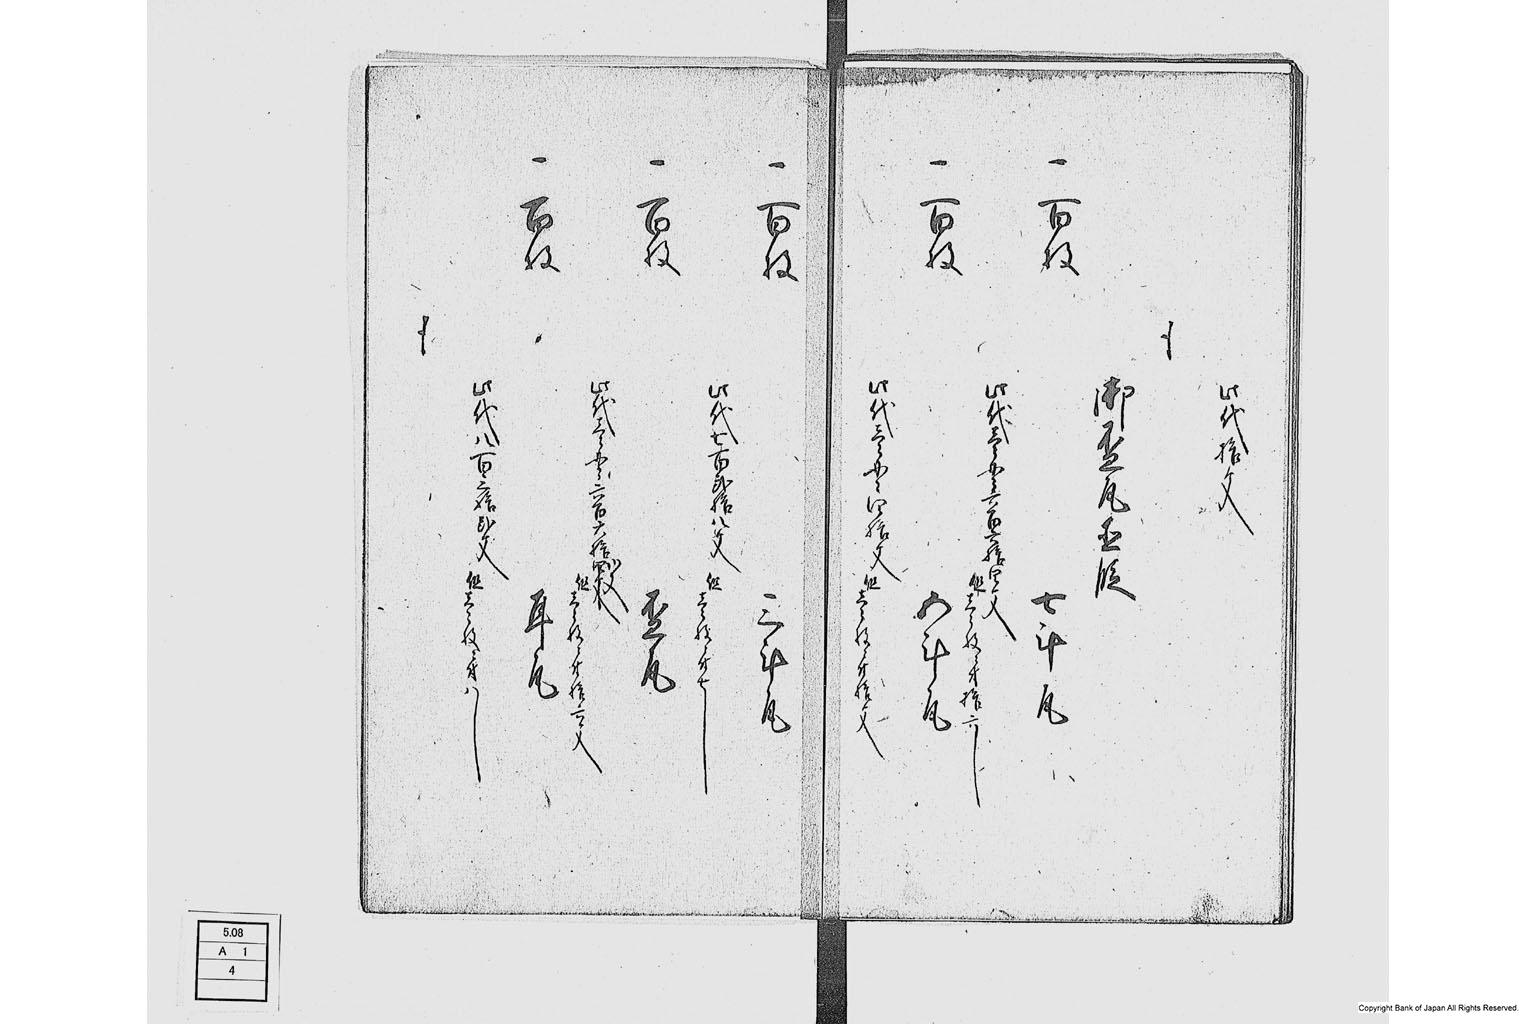 此代拾文
御壺瓦直段
一 百枚 七斗瓦
此代壱〆六百六拾四文
但壱枚ニ付拾六文
一 百枚 五斗瓦
此代壱〆四拾文
但壱枚ニ付拾文
一 百枚 三斗瓦
此代七百弐拾八文
但壱枚ニ付七文
一 百枚 壺瓦
此代壱〆六百六拾四文
但壱枚ニ付拾六文
一 百枚 耳瓦
此代八百三拾弐文
但壱枚ニ付八文
5.08
A 1
4
Copyright Bank of Japan All Rights Reserved.